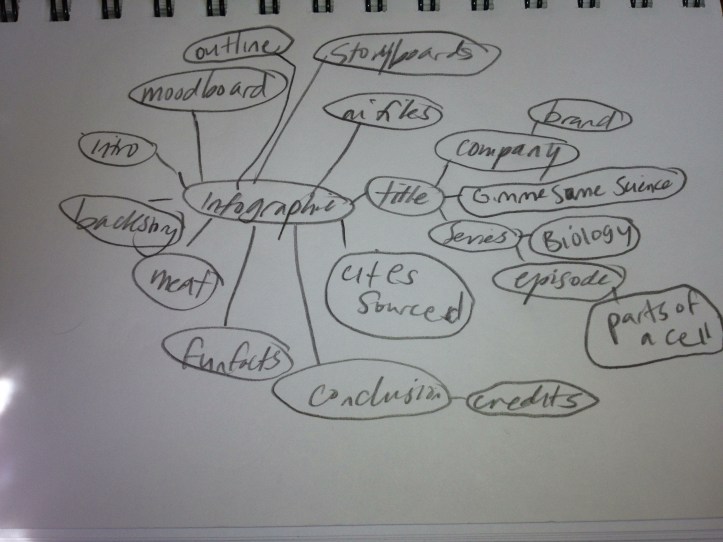 outline
Storyboards
moodboard
ai files
brand
intro
company
Infographic
title
Gimme Some Science
backstory
series
Biology
meat
cites
sourced
episode
parts of
a cell
funfacts
conclusion
credits